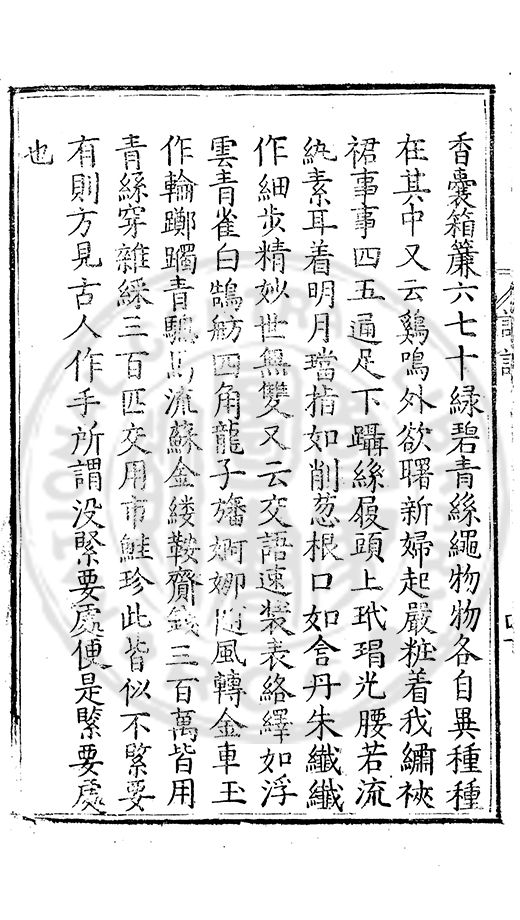 香囊箱簾六七十緑碧青絲繩物物各自異種種
在其中又云鷄鳴外欲曙新婦起嚴粧着我繡裌
裙事事四五通足下躡絲履頭上玳瑁光腰若流
紈素耳着明月璫指如削葱根口如含丹朱纖纖
作細步精妙世無雙又云交語速裝表絡繹如浮
雲青雀白鵠舫四角龍子旛婀娜隨風轉金車玉
作輪躑躅青驄馬流蘇金縷鞍齎錢三百萬皆用
青絲穿雜綵三百匹交用市鮭珍此皆似不緊要
有則方見古人作手所謂没緊要處便是緊要處
也